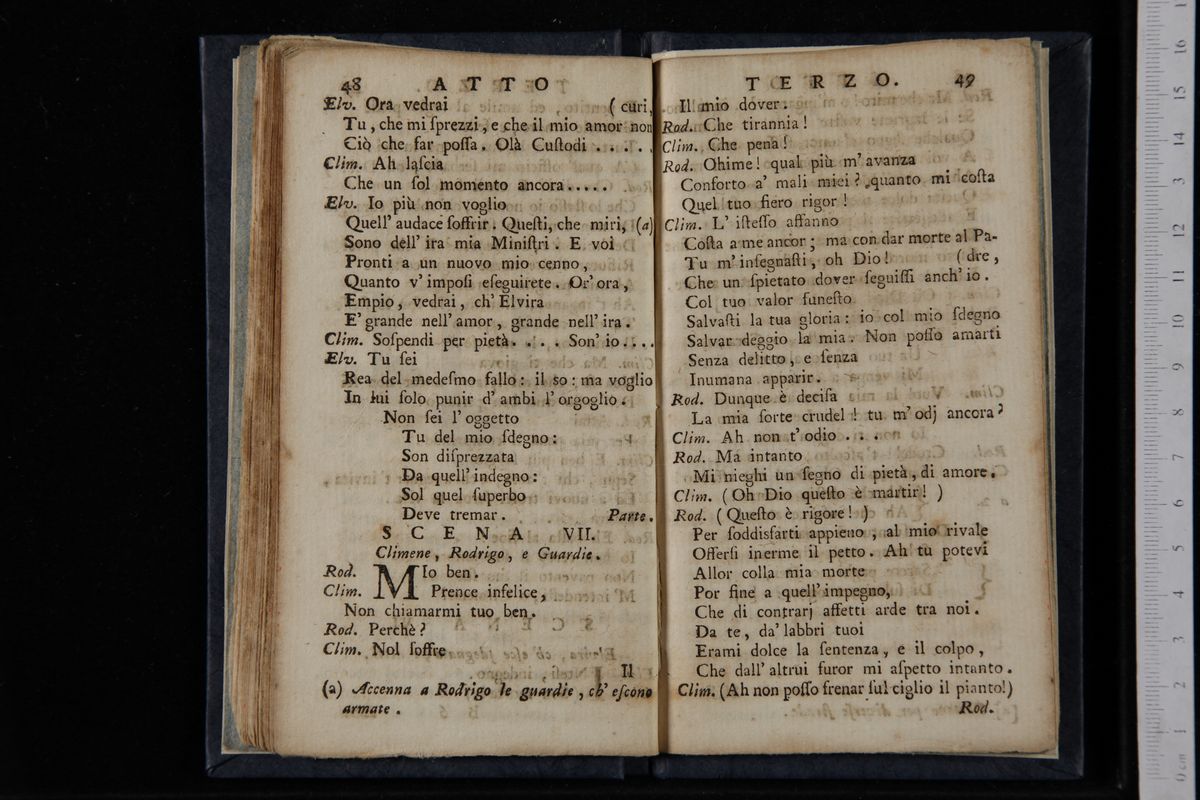 48 ATTO
Elv. Ora vedrai (curi,
Tu, che mi ſprezzi, e che il mio amor non
Ciò che far poſſa. Olà Cuſtodi . . . . .
Clim. Ah laſcia
Che un ſol momento ancora.....
Elv. Io più non voglio
Quell' audace ſoffrir. Queſti, che miri, (a)
Sono dell' ira mia Miniſtri. E voi
Pronti a un nuovo mio cenno,
Quanto v' impoſi eſeguirete. Or' ora,
Empio, vedrai, ch' Elvira
E' grande nell' amor, grande nell' ira.
Clim. Soſpendi per pietà. . . . Son' io....
Elv. Tu ſei
Rea del medeſmo fallo: il so: ma voglio
In lui ſolo punir d' ambi l' orgoglio.
Non ſei l' oggetto
Tu del mio ſdegno:
Son diſprezzata
Da quell' indegno:
Sol quel ſuperbo
Deve tremar. Parte.
SCENA VII.
Climene, Rodrigo, e Guardie.
Rod. MIo ben.
Clim. Prence infelice,
Non chiamarmi tuo ben.
Rod. Perchè?
Clim. Nol ſoffre
Il
(a) Accenna a Rodrigo le guardie, ch' eſcono
armate.
TERZO. 49
Il mio dover.
Rod. Che tirannia!
Clim. Che pena!
Rod. Ohime! qual più m' avanza
Conforto a' mali miei? quanto mi coſta
Quel tuo fiero rigor!
Clim. L' iſteſſo affanno
Coſta a me ancor; ma con dar morte al Pa-
Tu m' inſegnaſti, oh Dio! (dre,
Che un ſpietato dover ſeguiſſi anch' io.
Col tuo valor funeſto
Salvaſti la tua gloria: io col mio ſdegno
Salvar deggio la mia. Non poſſo amarti
Senza delitto, e ſenza
Inumana apparir.
Rod. Dunque è deciſa
La mia ſorte crudel! tu m' odj ancora?
Clim. Ah non t' odio . . .
Rod. Ma intanto
Mi nieghi un ſegno di pietà, di amore.
Clim. (Oh Dio queſto è martir! )
Rod. (Queſto è rigore! )
Per ſoddisfarti appieno, al mio rivale
Offerſi inerme il petto. Ah tu potevi
Allor colla mia morte
Por fine a quell' impegno,
Che di contrarj affetti arde tra noi.
Da te, da' labbri tuoi
Erami dolce la ſentenza, e il colpo,
Che dall' altrui furor mi aſpetto intanto.
Clim. (Ah non poſſo frenar ſul ciglio il pianto!)
Rod.